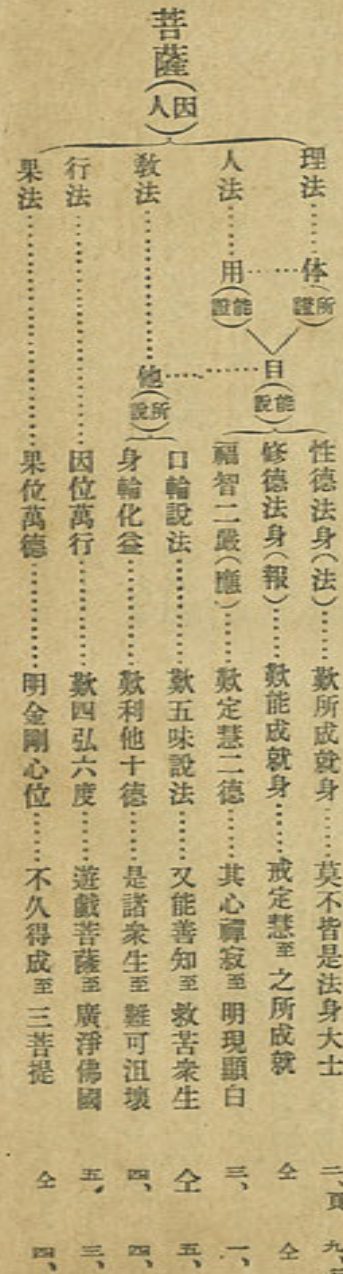 菩薩(因人)
理法……体(所證)
人法……用(能證)
目(能說)
教法……他(所說)
行法
果法
性德法身(法)……歎所成就身……莫不皆是法身大士 二、頁 九、
修德法身(報)……歎能成就身……戒定慧至之所成就 仝 仝
福智二嚴(應)……歎定慧二德……其心禪寂至明現顯白 三、 一、
口輪說法……歎五味說法……又能善知至救苦衆生 仝 五、
身輪化益……歎利他十德……是諸衆生至難可沮壞 四、 四、
因位萬行……歎四弘六度……遊戲菩薩至廣淨佛國 五、 三、
果位萬德……明金剛心位……不久得成至三菩提 仝 四、